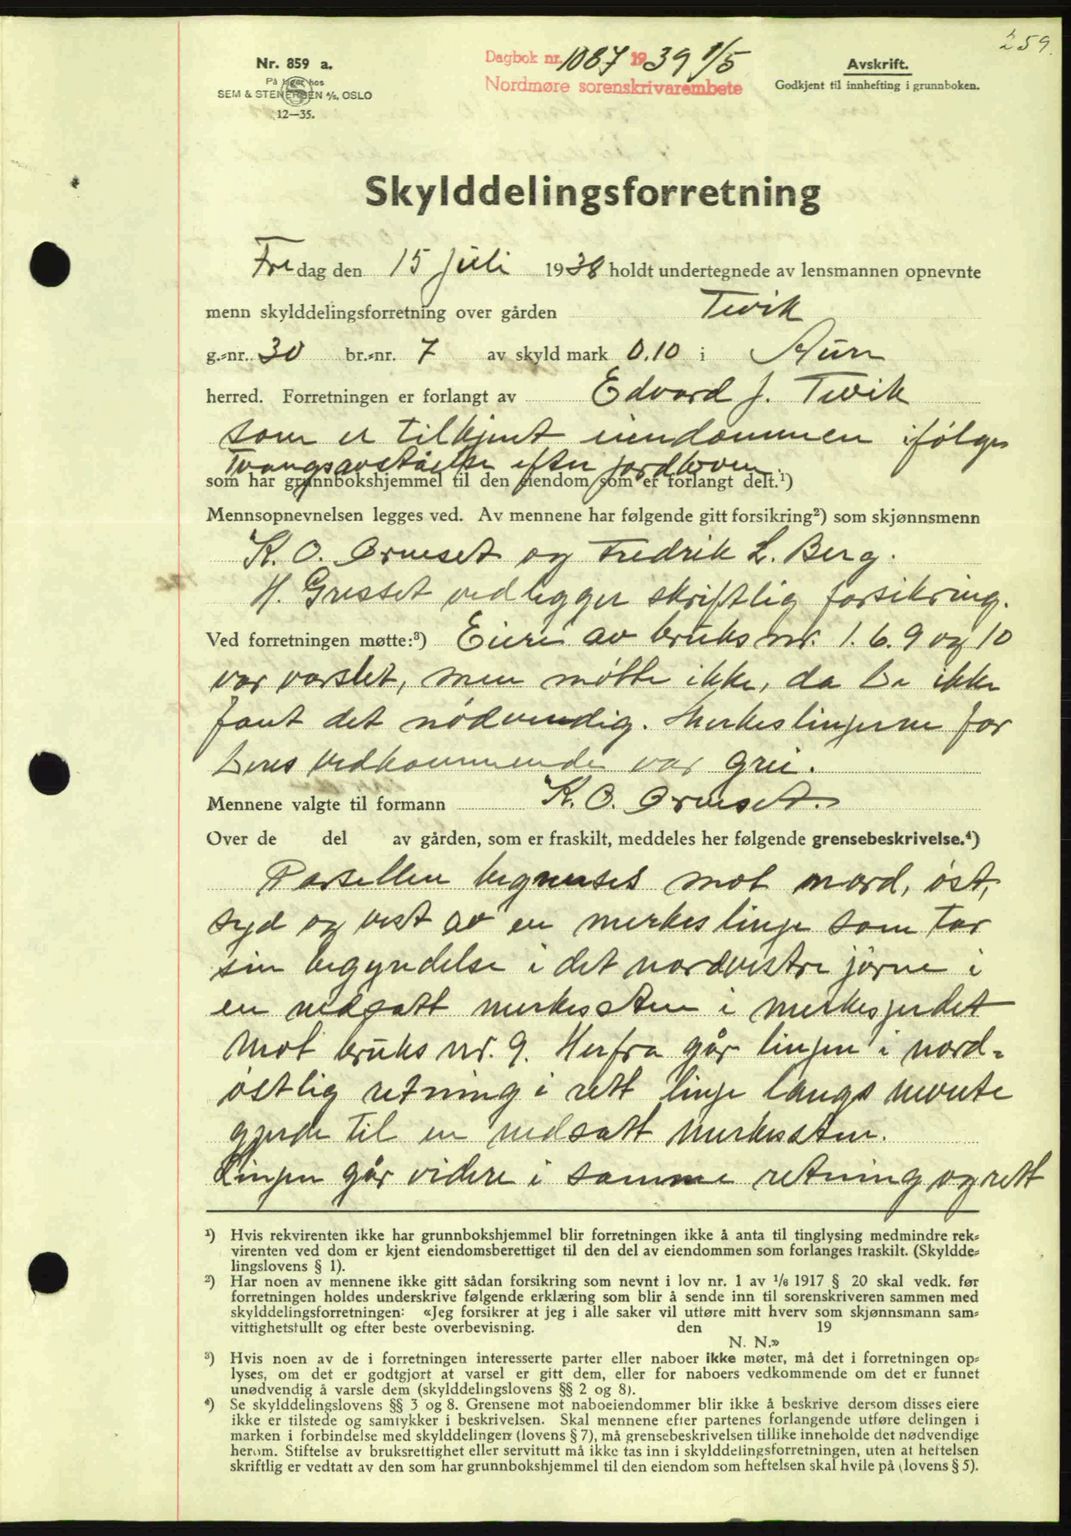 259.
Nr. 859 a.
På lager hos
SEM & STENERSEN A/S, OSLO
12—35.
Dagbok nr. 1087 1939 1/5
Nordmøre sorenskrivarembete
Avskrift.
Godkjent til innhefting i grunnboken.
Skylddelingsforretning
Fredag den 15 juli 1938 holdt undertegnede av lensmannen opnevnte
menn skylddelingsforretning over gården Tevik
g.-nr. 30 br.-nr. 7 av skyld mark 0.10 i Aure
herred. Forretningen er forlangt av Edvard J. Tevik
som er tilkjent eiendommen ifølge
Tvangsavståelse efter jordloven.
som har grunnbokshjemmel til den eiendom som er forlangt delt.¹)
Mennsopnevnelsen legges ved. Av mennene har følgende gitt forsikring²) som skjønnsmenn
K. O. Ormset og Fredrik L. Berg.
H. Grisset vedlegger skriftlig forsikring.
Ved forretningen møtte:³) Eiere av bruks nr. 1. 6. 9 og 10
var varslet, men møtte ikke, da de ikke
fant det nødvendig. Merkeslinjerne for
deres vedkommende var grei.
Mennene valgte til formann K. O. Ormset.
Over de del av gården, som er fraskilt, meddeles her følgende grensebeskrivelse.⁴)
Parsellen begrenses mot nord, øst,
syd og vest av en merkeslinje som tar
sin begyndelse i det nordvestre jørne i
en nedsatt merkessten i merkesjerdet
mot bruks nr. 9. Herfra går linjen i nord-
østlig retning i rett linje langs nevnte
gjerde til en nedsatt merkessten.
Linjen går videre i samme retning og rett
¹) Hvis rekvirenten ikke har grunnbokshjemmel blir forretningen ikke å anta til tinglysing medmindre rek-
virenten ved dom er kjent eiendomsberettiget til den del av eiendommen som forlanges fraskilt. (Skyldde-
lingslovens § 1).
²) Har noen av mennene ikke gitt sådan forsikring som nevnt i lov nr. 1 av 1/6 1917 § 20 skal vedk. før
forretningen holdes underskrive følgende erklæring som blir å sende inn til sorenskriveren sammen med
skylddelingsforretningen: «Jeg forsikrer at jeg i alle saker vil utføre mitt hverv som skjønnsmann sam-
vittighetsfullt og efter beste overbevisning. den 19
N. N.»
³) Hvis noen av de i forretningen interesserte parter eller naboer ikke møter, må det i forretningen op-
lyses, om det er godtgjort at varsel er gitt dem, eller for naboers vedkommende om det er funnet
unødvendig å varsle dem (skylddelingslovens §§ 2 og 8).
⁴) Se skylddelingslovens §§ 3 og 8. Grensene mot naboeiendommer blir ikke å beskrive dersom disses eiere
ikke er tilstede og samtykker i beskrivelsen. Skal mennene efter partenes forlangende utføre delingen i
marken i forbindelse med skylddelingen (lovens § 7), må grensebeskrivelsen tillike inneholde det nødvendige
herom. Stiftelse av bruksrettighet eller servitutt må ikke tas inn i skylddelingsforretningen, uten at heftelsen
skriftlig er vedtatt av den som har grunnbokshjemmel til den eiendom som heftelsen skal hvile på (lovens § 5).